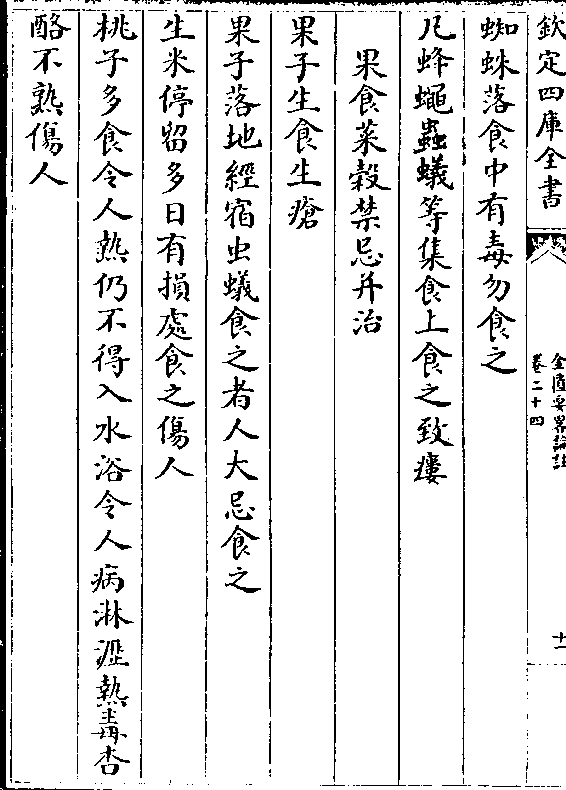 欽定四庫全書
金匱要畧論註
卷二十四
十一
蜘蛛落食中有毒勿食之
凡蜂蠅蟲蟻等集食上食之致瘻
果食菜榖禁忌并治
果子生食生瘡
果子落地經宿虫蟻食之者人大忌食之
生米停留多日有損處食之傷人
桃子多食令人熱仍不得入水浴令人病淋瀝熱毒杏
酪不熟傷人